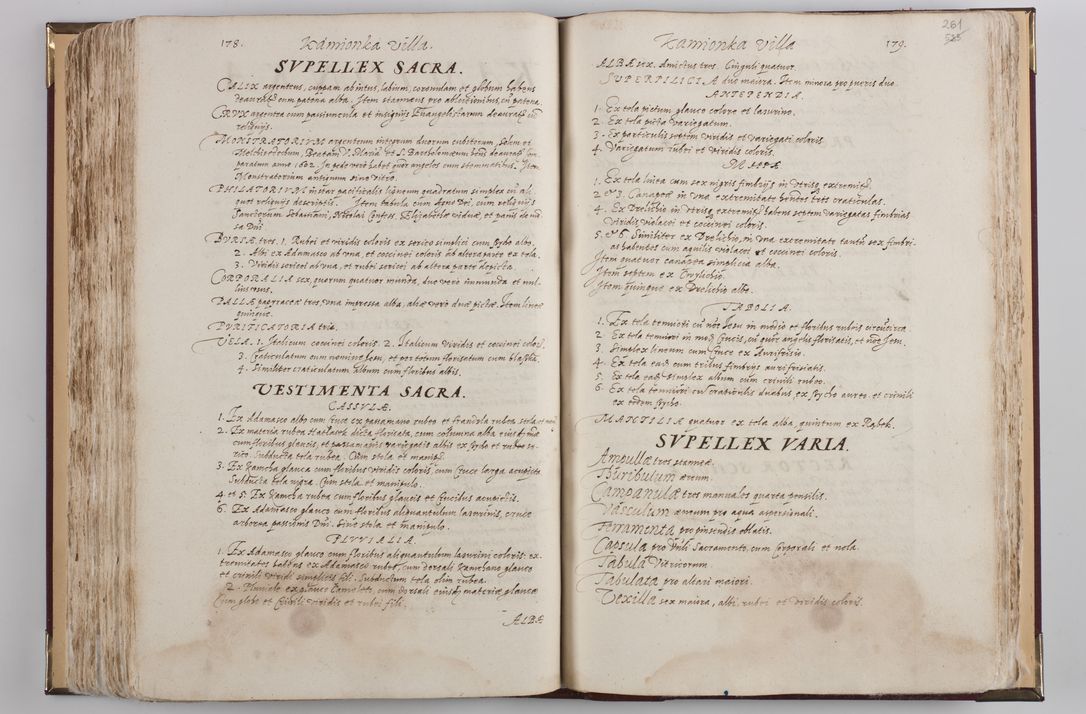 178. Kamionka Villa.
SVPELLEX SACRA.
CALIX argenteus, cuppam ab intus, labium, coronulam et globum habens
deauratū cum patena alba. Item stanneus pro ablutionibus, cū patena.
CRVX argentea cum pacivncula et insignijs Euangelistarum deauratū cū
reliquijs.
MONSTRATORIVM argenteum integrum duorum cubitorum, Solem et
Melchisedechum, Beatam V. Mariā et S. Bartholomæum
paratum anno 1602. In pede vero habet quatuor angelos cum stemmatibus. Item
Monstratorium antiquum sine vitro.
PHILATORIVM instar pacificalis ligneum quadratum simplex cū ali,
quot reliquijs descriptis. Item tabula cum Agno Dei, cum reliquijs
Sanctorum Sebastiani, Nicolai Confess. Elisabethæ viduæ, et panis de
sa Dni
BVRSÆ tres. 1. Rubei et viridis coloris ex serico simplici cum Psycho albo.
2. Albi ex Adamasco ab vna, et coccinei coloris ab altera parte ex tela.
3. Viridis sericei ab vna, et rubri sericei ab altera parte depicta.
CORPORALIA sex, quorum quatuor munda, duo vero immunda et nul,
lius vsus.
PALLÆ papyraceæ tres, vna impressa alba, aliæ vero duæ pictæ. Item lineæ
quinque.
PVRIFICATORIA tria.
VELA. 1. Italicum coccinei coloris. 2. Italicum viridis et coccinei coloris
3. Craticulatum cum nomine Iesu, et per totum florisatum cum
4. Similiter craticulatum album cum floribus albis.
VESTIMENTA SACRA.
CASSVLÆ.
1. Ex Adamasco albo cum Cruce ex passamano rubeo et frandzla rubea stola et
2. Ex materia rubea Hatłarek dicta florisata, cum columna alba eiusdē
cum floribus glaucis, et passamanijs variegatis albis ex Psycho et rubro se,
rico. Subducta tela rubea. Cum stola et manip.
3. Ex Kamcha glauca cum floribus viridis coloris, cum Cruce larga acupicta
Subducta tela nigra. Cum stola et manipulo.
4. et 5. Ex Kamcha rubea cum floribus glaucis et Crucibus acupictis.
6. Ex Adamasco glauco cum floribus aliquantulum lasurinis, cruce
arborea passionis Dni. Sine stola et manipulo.
PLVVIALIA.
1. Ex Adamasco glauco, cum floribus aliquantulum lasurini coloris: ex,
tremitates habens ex Adamasco rubeo, cum dorsali Kamchano glauco
et crinili viridi simplicis fili. Subductum tela olim rubea.
2. Pluuiale ex glauco Cameloto, cum dorsali eiusdē materiæ, glaucæ
Cum globo et Crinili viridis et rubri fili.
ALBÆ
Kamionka Villa 179.
261
ALBÆ sex. Amictus tres. Cinguli quatuor.
SVPERPILICIA duo maiora. Item minora pro pueris duo.
ANTEPENDIA.
1. Ex tela pictum glauco colore et lasurino.
2. Ex tela picta variegatum.
3. Ex particulis septem viridis et variegati coloris
4. Variegatum rubri et viridis coloris.
MAPPÆ
1. Ex tela linea cum sex nigris fimbrijs in vtrisq extremit.
2 et 3. Canapeæ in vna extremitate habentes tres craticulas.
4. Ex Drelichio in vtrisq extremit. habens septem variegatas fimbrias
viridis violacei et coccinei coloris.
5. et 6. Similiter ex Drelichio, in vna extremitate tantū sex fimbri,
as habentes cum aquilis violacei et coccinei coloris.
Item quatuor canapeæ simplices albæ.
Item septem ex
Item quinque ex Drelichio albo.
TABOLIA.
1. Ex tela tenuiori cū noīe Iesu in medio et floribus rubris circūcirca.
2. Ex tela tenuiori in modū Crucis, cū quatuor angelis florisatis, et noīe Iesu.
3. Simplex lineum cum Cruce ex Aurifrisio.
4. Ex tela eadē cum tribus fimbrijs aurifrisiatis.
5. Ex tela eadē simplex album cum crinili rubeo.
6. Ex tela tenuiori cū craticulis duabus ex psycho aureo et crinili
ex eodem psycho.
MANTILIA quatuor ex tela alba, quintum ex Rąbek.
SVPELLEX VARIA.
Ampullæ tres stanneæ.
Thuribulum æreum.
Campanulæ tres manuales quarta pensilis.
Vasculum æreum pro aqua aspersionali.
Ferramenta pro pinsendis oblatis.
Capsula pro Vnli Sacramento, cum Corporali et nola.
Tabula Vitricorum.
Tabulata pro altari maiori.
Vexilla sex maiora, albi, rubri et viridis coloris.